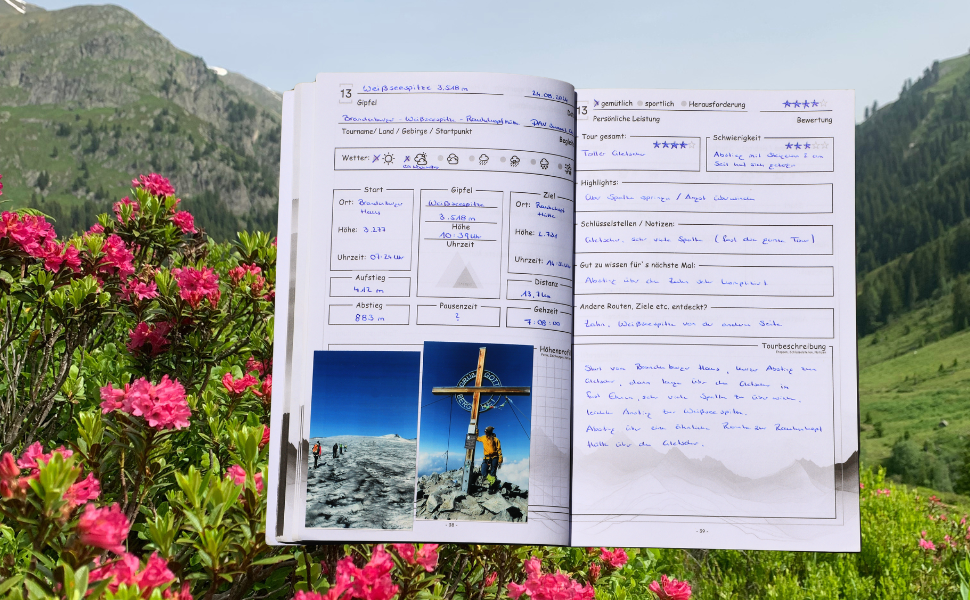 13 Weißseespitze 3.518 m
24.08.
Gipfel
Brandenburger - Weißseespitze - Rauhekopfhütte DAV
Tourname/ Land / Gebirge / Startpunkt
Wetter:
Start
Ort: Brandenburger
Haus
Höhe: 3.277
Uhrzeit: 07:24 Uhr
Gipfel
Weißseespitze
3.518 m
Höhe
10:39 Uhr
Uhrzeit
Ziel
Ort: Rauhekopf
Hütte
Höhe: 2.731
Uhrzeit: 14:
Aufstieg
412 m
Abstieg
883 m
Pausenzeit
?
Distanz
13,7 km
Gehzeit
7:08:00
GRÜSS GOTT
- 58 -
13 gemütlich sportlich Herausforderung
Persönliche Leistung
Bewertung
Tour gesamt:
Toller Gletscher
Schwierigkeit
Abstieg mit Steigeisen
Highlights:
über Spalte springen / Angst überwinden
Schlüsselstellen / Notizen:
Gletscher, sehr viele Spalten (fast die ganze Tour)
Gut zu wissen für's nächste Mal:
Abstieg über die Zahn sehr kompliziert
Andere Routen, Ziele etc. entdeckt?
Zahn, Weißseespitze von der anderen Seite
Tourbeschreibung
Start vom Brandenburger Haus, kurzer Abstieg zum
Gletscher, dann lange über den Gletscher in
fast Ebenen, sehr viele Spalten zu überwinden.
Leichter Anstieg zur Weißseespitze.
Abstieg über eine ähnliche Route zur Rauhekopf
Hütte über den Gletscher.
- 59 -